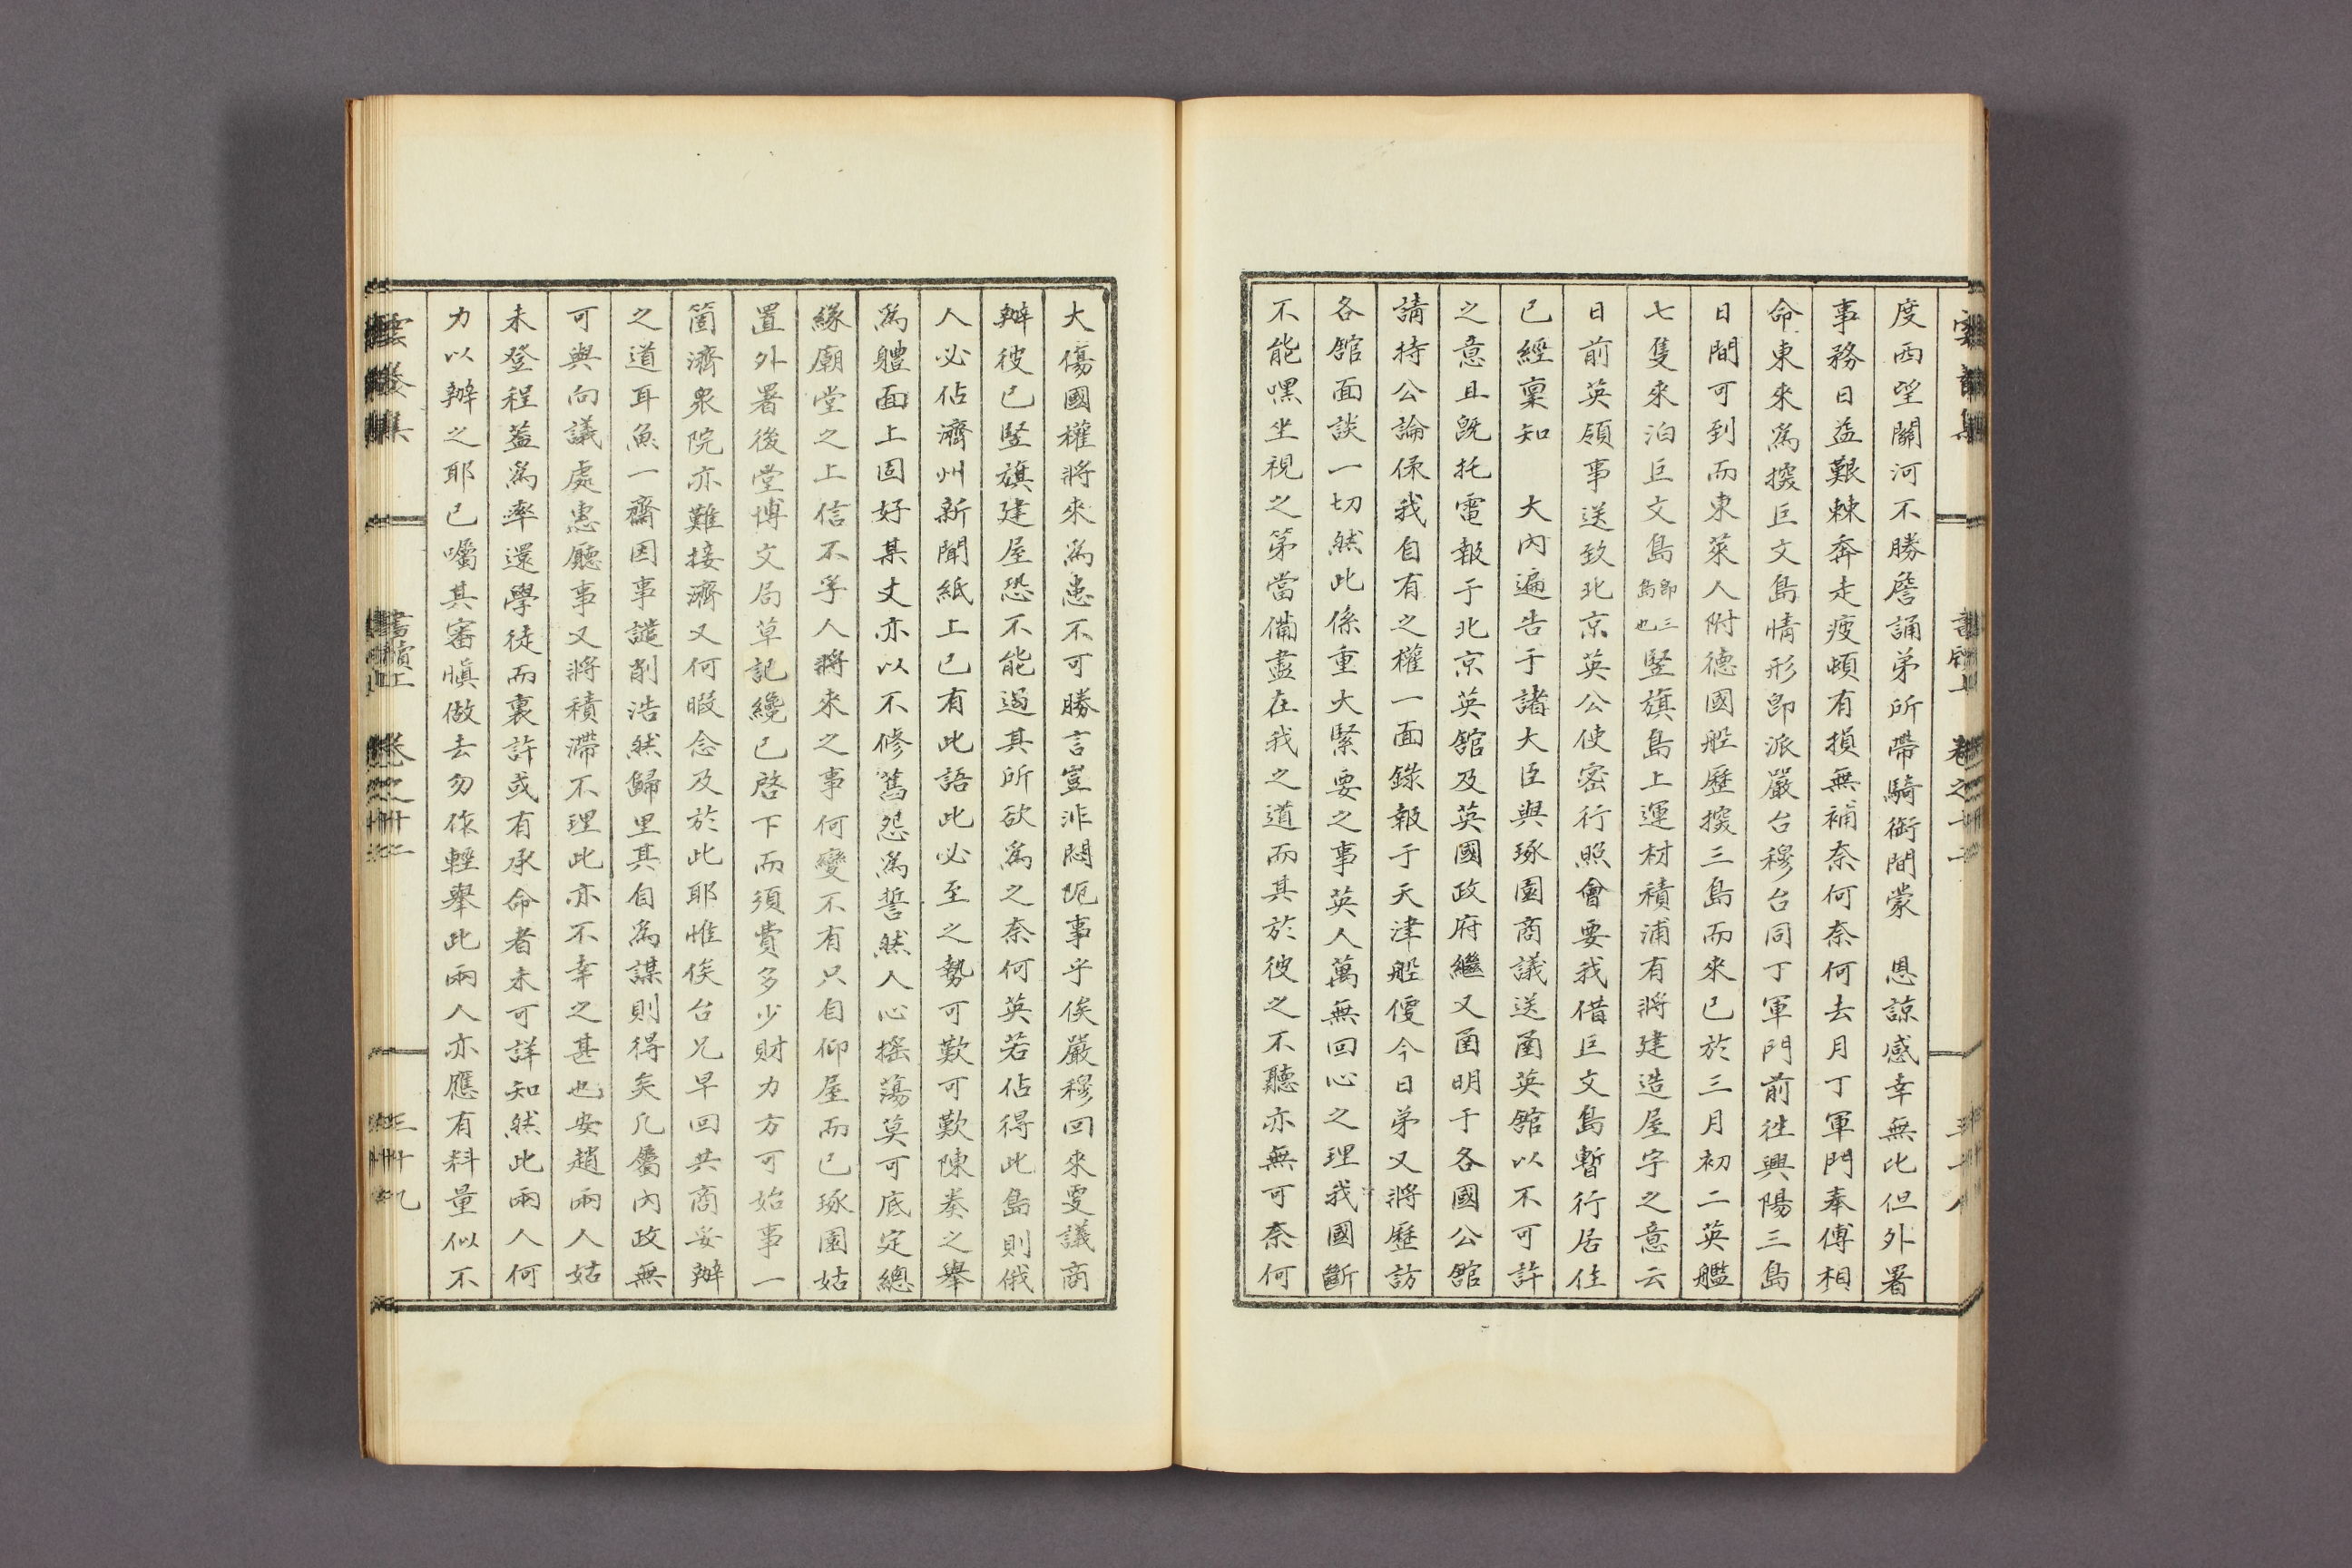 度西望關河不勝詹誦弟所帶騎銜間蒙　恩諒感幸無比但外署
事務日益艱棘奔走疲頓有損無補奈何奈何去月丁軍門奉傅相
命東來爲探巨文島情形卽派嚴台穆台同丁軍門前徃興陽三島
日間可到而東萊人附德國船歷探三島而來已於三月初二英艦
七隻來泊巨文島卽三島也竪旗島上運材積浦有將建造屋宇之意云
日前英領事送致北京英公使密行照會要我借巨文島暫行居住
已經稟知　大內遍告于諸大臣與琢園商議送函英舘以不可許
之意且旣托電報于北京英舘及英國政府繼又函明于各國公舘
請持公論保我自有之權一面錄報于天津船便今日弟又將歷訪
各舘面談一切然此係重大緊要之事英人萬無回心之理我國斷
不能嘿坐視之第當備盡在我之道而其於彼之不聽亦無可奈何
卷之十二
大傷國權將來爲患不可勝言豈非悶阨事乎俟嚴穆回來更議商
辦彼已竪旗建屋恐不能遏其所欲爲之奈何英若佔得此島則俄
人必佔濟州新聞紙上已有此語此必至之勢可歎可歎陳奏之擧
爲體面上固好某丈亦以不修舊怨爲誓然人心搖蕩莫可底定總
緣廟堂之上信不孚人將來之事何變不有只自仰屋而已琢園姑
置外署後堂博文局草記纔已啓下而須費多少財力方可始事一
箇濟衆院亦難接濟又何暇念及於此耶惟俟台兄早回共商妥辦
之道耳魚一齋因事譴削浩然歸里其自爲謀則得矣凡屬內政無
可與向議處惠廳事又將積滯不理此亦不幸之甚也安趙兩人姑
未登程葢爲率還學徒而裏許或有承命者未可詳知然此兩人何
力以辦之耶已囑其審愼做去勿作輕擧此兩人亦應有料量似不
雲養集
書牘上